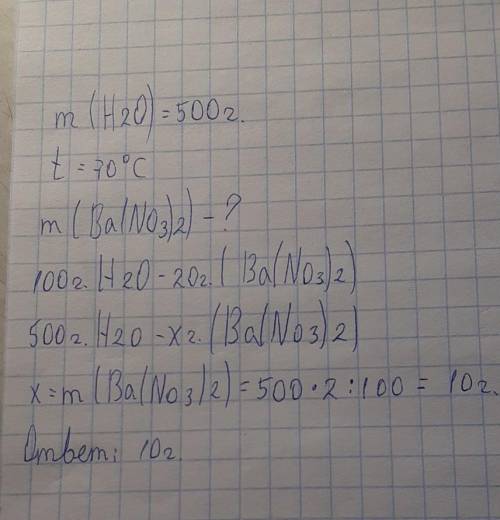 m (H2O) = 500г.
t = 70°C
m (Ba(NO3)2) - ?
100г. H2O - 20г. (Ba(NO3)2)
500г. H2O - xг. (Ba(NO3)2)
x = m (Ba(NO3)2) = 500 · 2 : 100 = 10г.
Ответ: 10г.